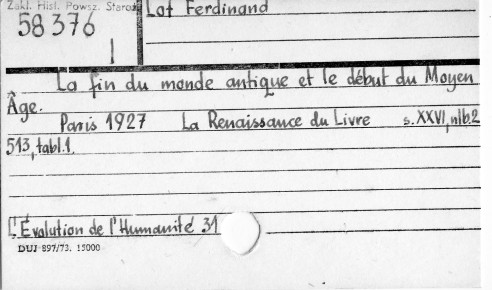 Zakł. Hist. Powsz. Staroż
Lot Ferdinand
58376
La fin du monde antique et le début du Moyen
Âge.
Paris 1927 La Renaissance du Livre s. XXVI, nlb. 2
513, tabl. 1.
L'Évolution de l'Humanité 31
DUJ 897/73. 15000